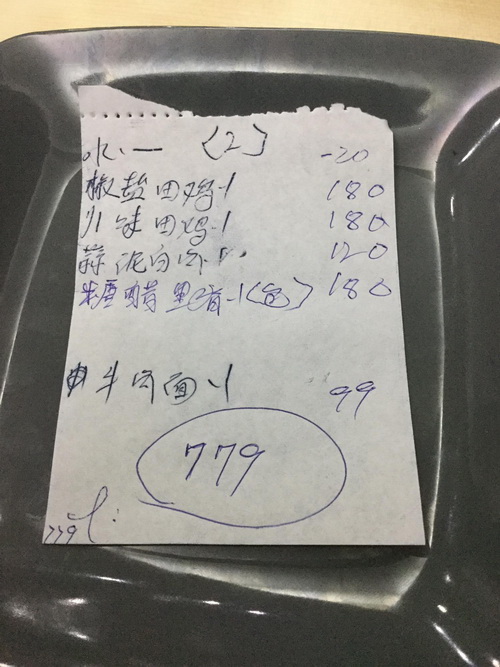 水一 (2) -20
椒盐田鸡-1 180
川味田鸡-1 180
蒜泥白肉-1 120
糖醋里脊-1(包) 180
牛肉面-1 99
779
779